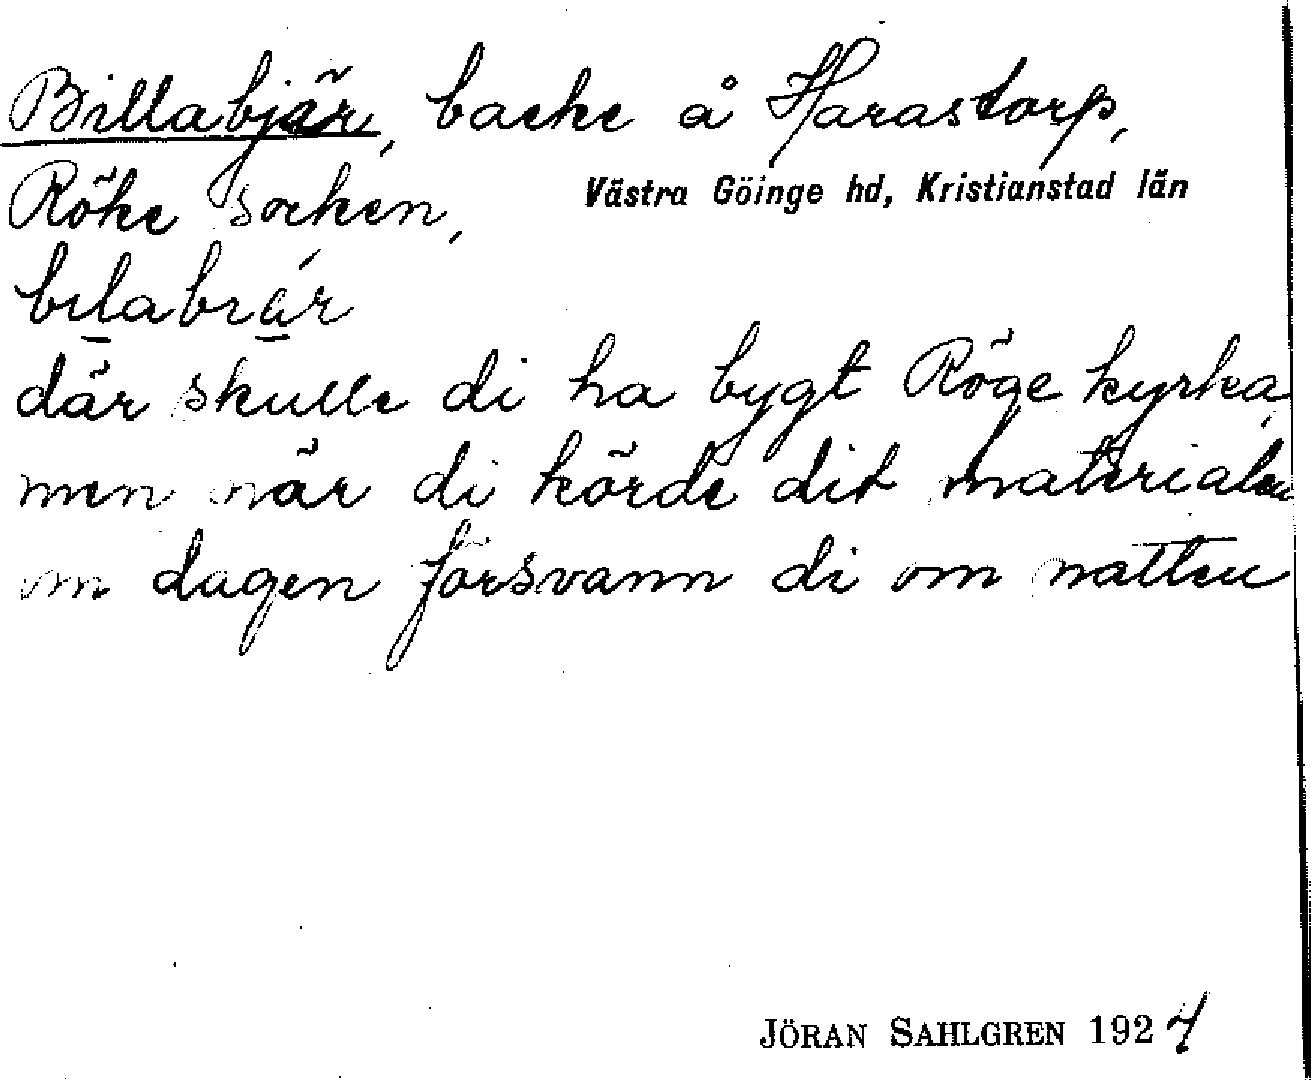 Billabjär, backe å Harastorp,
Röke socken, Västra Göinge hd, Kristianstad län
bılabıár
där skulle di ha bygt Röge kyrka,
men när di körde dit materialen
om dagen försvann di om natten
JÖRAN SAHLGREN 1924